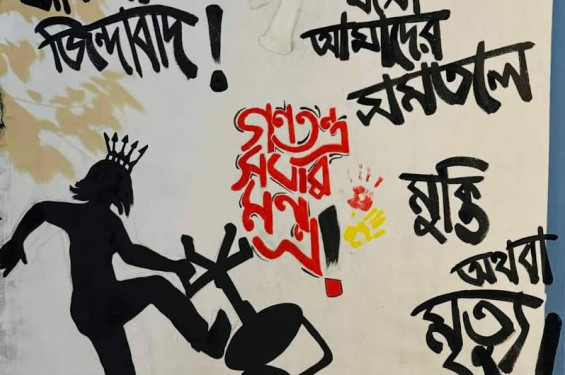 জিন্দাবাদ!
আমাদের
সমতলে
গণতন্ত্র
সবার
মন্ত্র!
মুক্তি
অথবা
মৃত্যু!